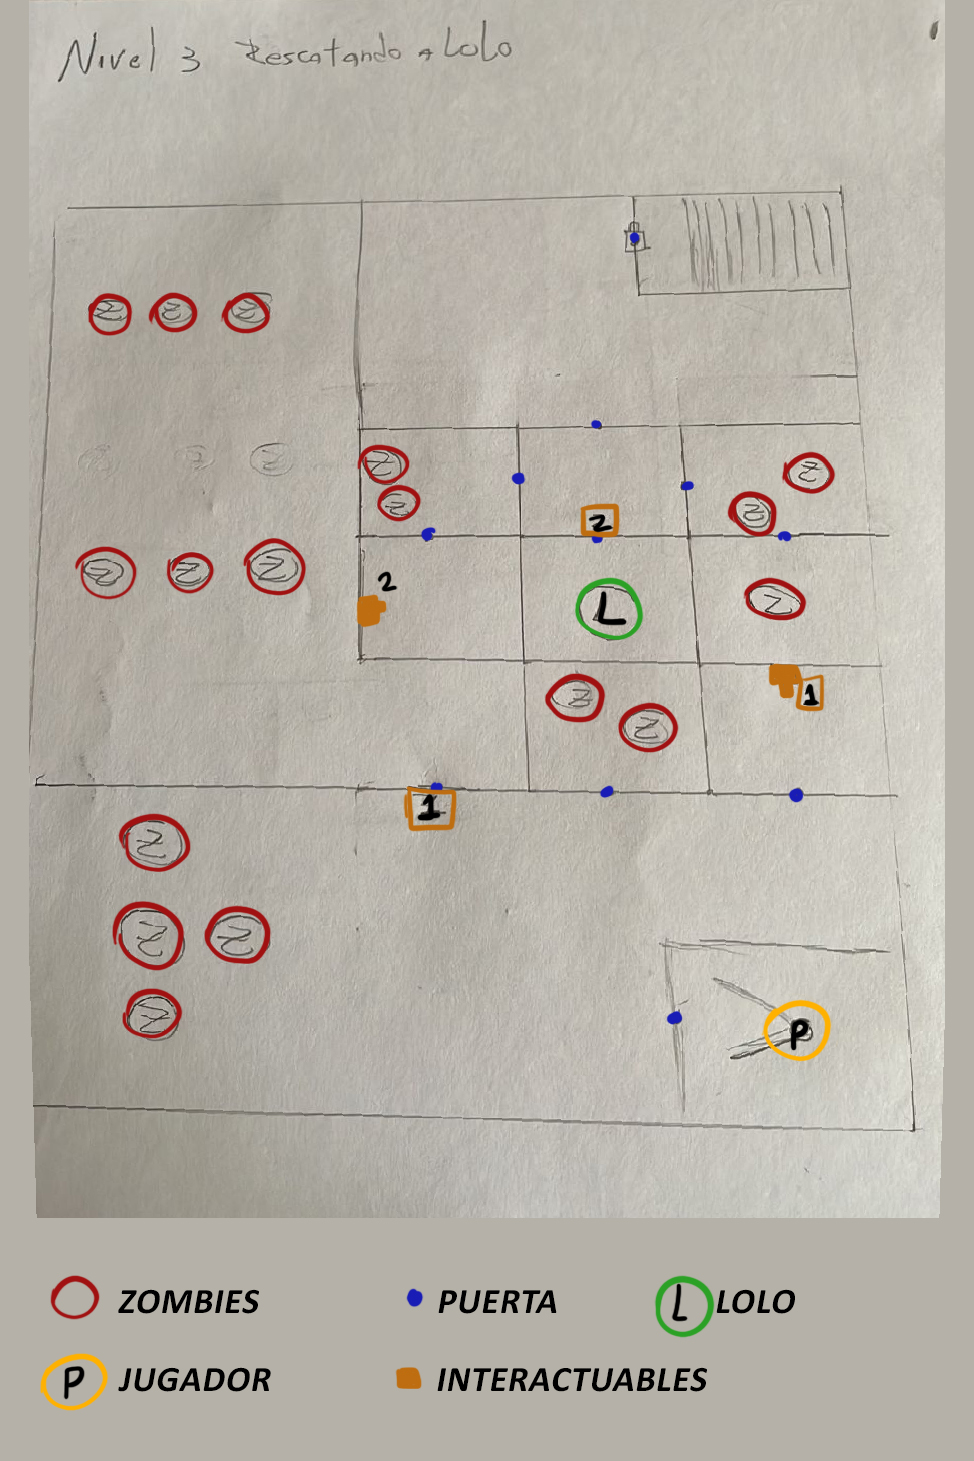 Nivel 3 Rescatando a Lolo
Z Z Z
Z
Z
Z
Z
2
Z Z Z
2
L
Z
Z
1
Z
1
Z
Z Z
Z
P
ZOMBIES
PUERTA
L LOLO
P JUGADOR
INTERACTUABLES